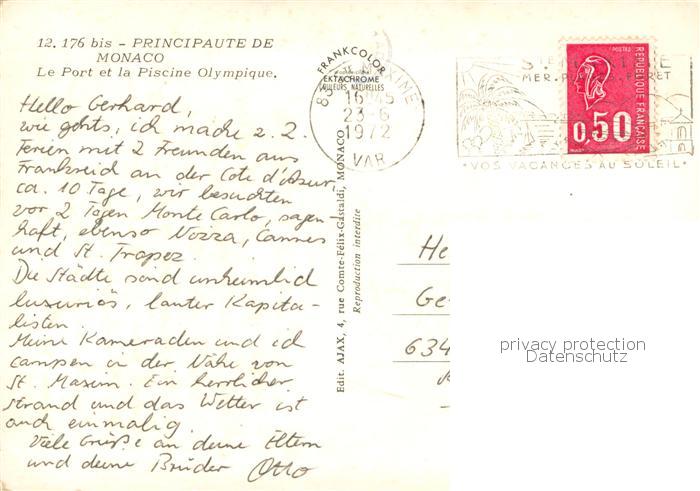 12. 176 bis – PRINCIPAUTE DE
MONACO
Le Port et la Piscine Olympique.
Hello Gerhard,
wie gehts, ich mache z. Z.
Ferien mit 2 Freunden aus
Frankreich an der Cote d'Azur,
ca. 10 Tage, wir besuchten
vor 2 Tagen Monte Carlo, sagen-
haft, ebenso Nizza, Cannes
und St. Tropez.
Die Städte sind unheimlich
luxuriös, lauter Kapita-
listen.
Meine Kameraden und ich
campen in der Nähe von
St. Maxim. Ein herrlicher
Strand und das Wetter ist
auch einmalig.
Viele Grüße an deine Eltern
und deine Brüder Otto
FRANKCOLOR
EKTACHROME
COULEURS NATURELLES
MAXIME
16 45
23-6
1972
VAR
Edit. AJAX, 4, rue Comte-Félix-Gastaldi, MONACO
Reproduction interdite
MER
VOS VACANCES AU SOLEIL
POSTES
REPUBLIQUE FRANÇAISE
0,50
He
Ge
634
privacy protection
Datenschutz